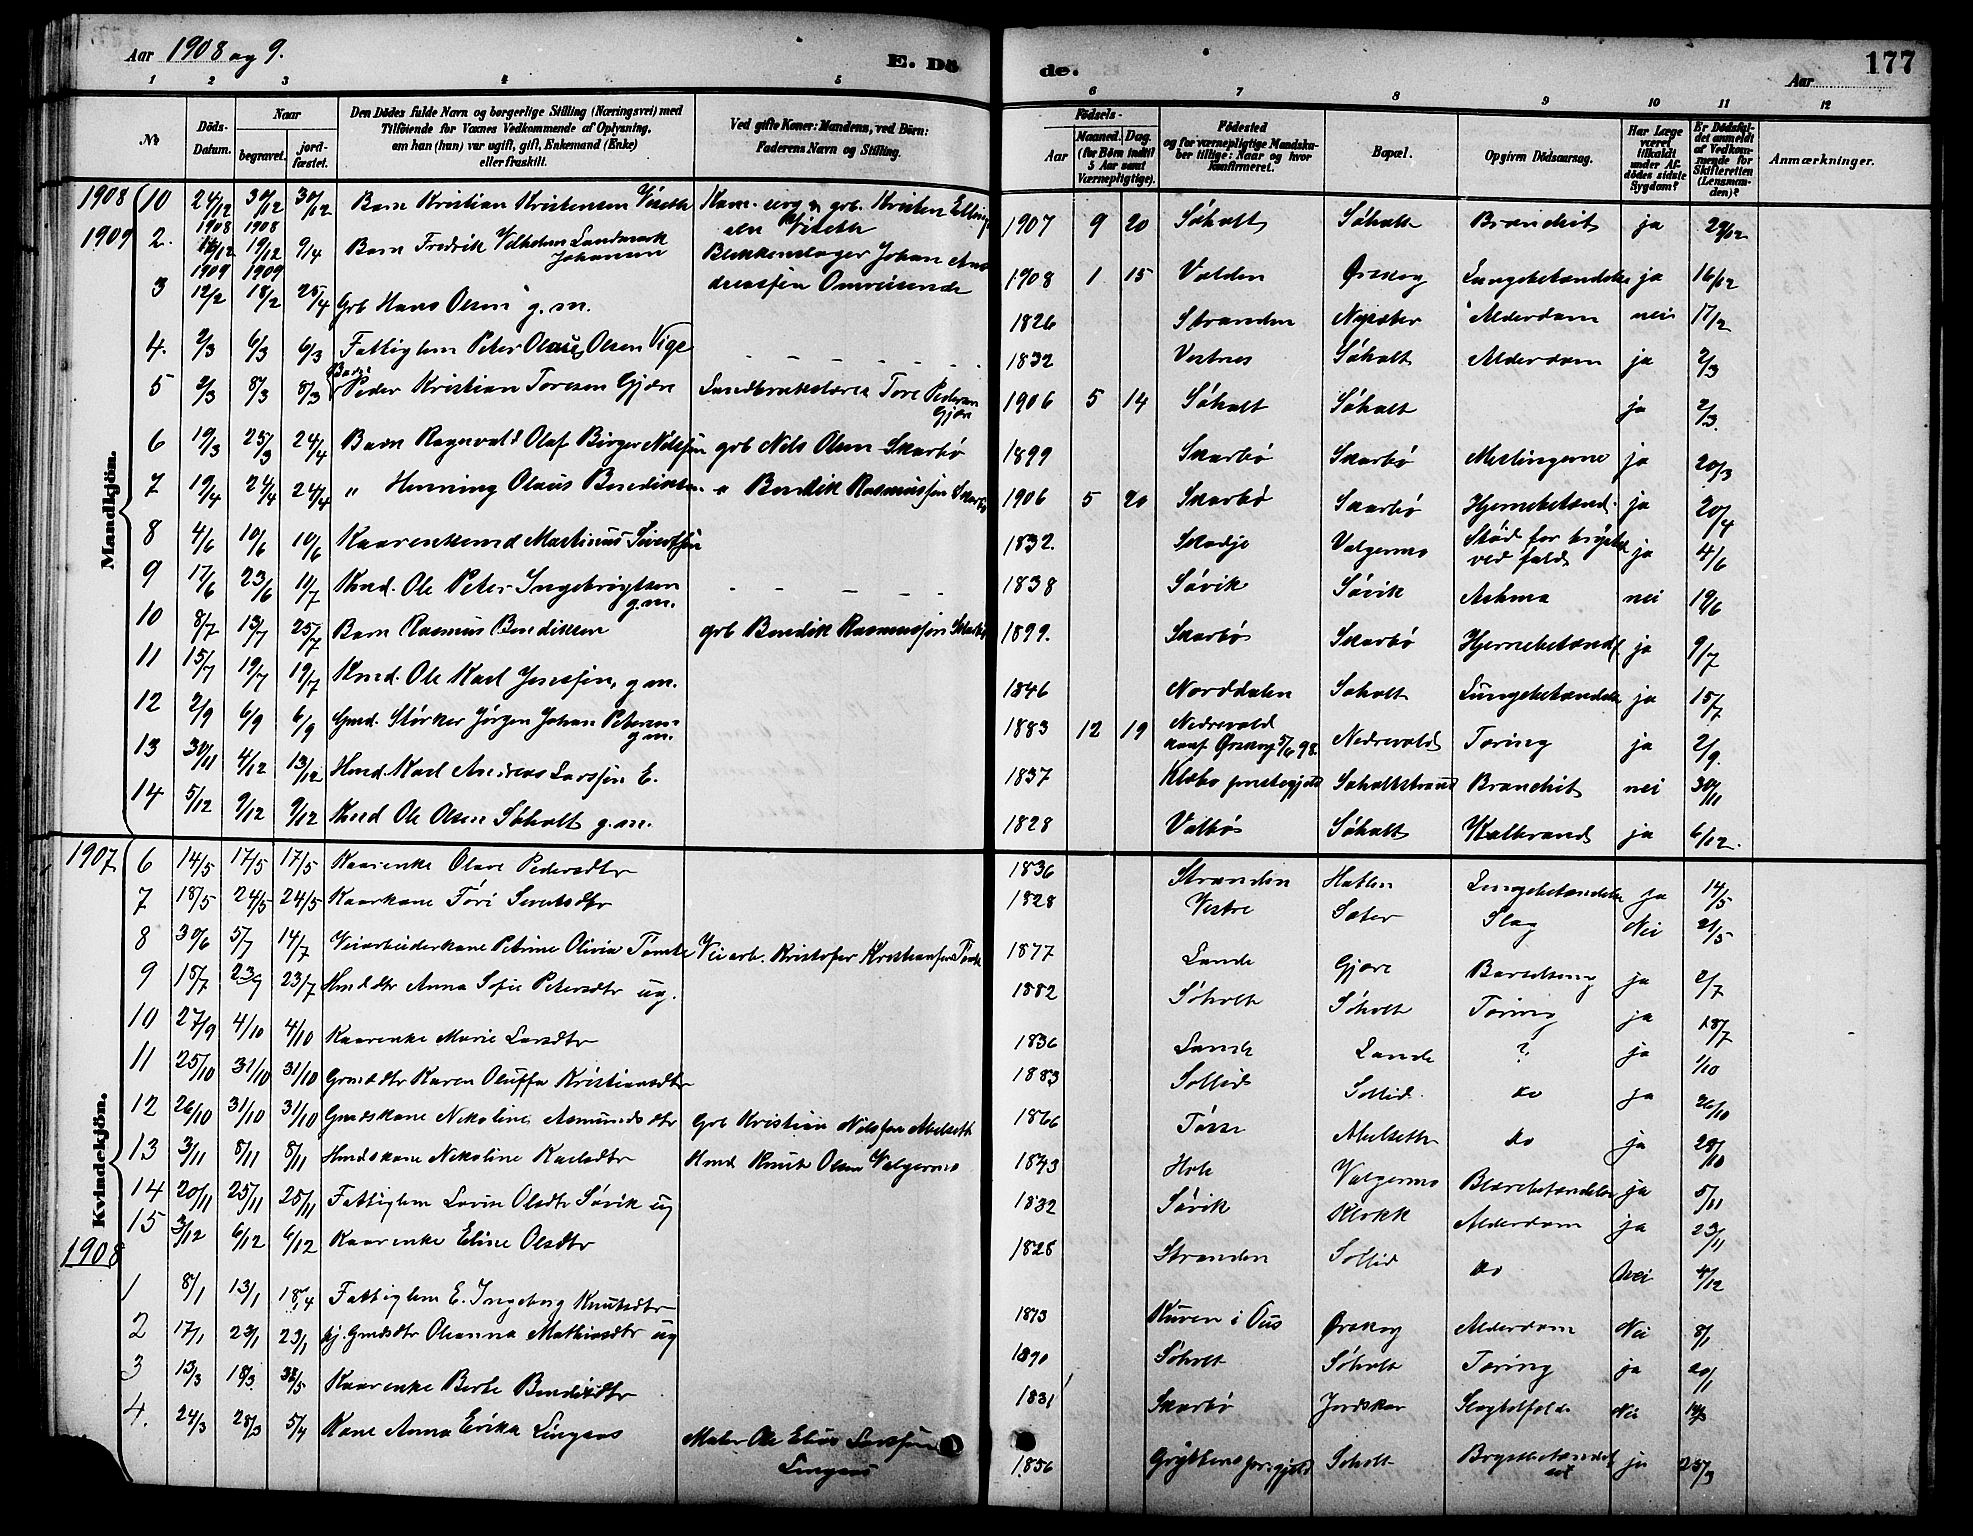 Aar 1908 og 9.
E. Dö
de.
Aar
177
1 2 3 4 5
6 7 8 9 10 11 12
No
Döds-Datum.
Naar
begravet.
jord-fæstet.
Den Dödes fulde Navn og borgerlige Stilling (Næringsvei) med
Tilföiende for Voxnes Vedkommende af Oplysning,
om han (hun) var ugift, gift, Enkemand (Enke)
eller fraskilt.
Ved gifte Koner: Mandens, ved Börn:
Faderens Navn og Stilling.
Födsels-
Aar
Maaned. Dag.
(for Börn indtil 5 Aar samt Værnepligtige).
Födested
og for værnepligtige Mandska-
ber tillige: Naar og hvor
konfirmeret.
Bopæl.
Opgiven Dödsaarsag.
Har Læge været tilkaldt under Afdödes sidste Sygdom?
Er Dödsfaldet anmeldt af Vedkommende for Skifteretten (Lensmanden)?
Anmærkninger.
Mandkjön.
1908 10 24/12 1908 30/12 1908 30/12 Barn Kristian Kristensen Viseth Kristen Viseth 1907 9 20 Søholt Søholt Bronchit ja 29/12
1909 2. 16/12 19/12 9/4 Barn Fredrik Vilhelm Landmark Johansen Blikkenslager Johan Andreassen Omreisende 1908 1 15 Volden Ørskog Lungebetændelse ja 16/12
3 1909 12/2 1909 18/2 25/4 Grb Hans Olsen g.m. 1826 Stranden Nysæter Alderdom nei 17/2
4. 2/3 6/3 6/3 Fattiglem Peter Olaus Olsen Vige 1832 Vestnes Søholt Alderdom ja 2/3
5 2/3 8/3 8/3 Barn Peder Kristian Toresen Gjære Landbrukslærer Tore Pedersen Gjære 1906 5 14 Søholt Søholt ja 2/3.
6 19/3 25/3 24/4 Barn Ragnvald Olaf Birger Nilssen grb Nils Olsen Skarbø 1899 Skarbø Skarbø Meslingerne ja 20/3
7 19/4 24/4 24/4 " Henning Olaus Bendiksen " Bendik Rasmussen Skarbø 1906 5 20 Skarbø Skarbø Hjernebetænd. ja 20/4
8 4/6 10/6 10/6 Kaarenkemd Martinus Sivertsen 1832. Skodje Valgermo Stød for brystet ved fald ja 4/6
9 17/6 23/6 11/7 Kmd. Ole Peter Ingebrigtsen g.m. 1838 Søvik Søvik Asthma nei 19/6
10 8/7 13/7 25/7 Barn Rasmus Bendiksen grb Bendik Rasmussen Skarbø 1899. Skarbø Skarbø Hjernebetænd. ja 9/7
11 15/7 19/7 19/7 Kmd. Ole Karl Jensen, g.m. 1846 Norddalen Søholt Lungebetændelse ja 15/7
12 2/9 6/9 6/9 Gmd. Størker Jørgen Johan Petersen g.m. 1883 12 19 Nedrevold konf Ørskog 5/6 98. Nedrevold Tæring ja 2/9.
13 30/11 4/12 13/12 Hmd. Karl Andreas Larssen E. 1837 Klæbo præstegjeld Søholtstrand Bronchit nei 30/11
14 5/12 9/12 9/12 Kmd Ole Olsen Søholt g.m. 1828 Valbø Søholt Kolbrand ja 6/12.
Kvindekjön.
1907 6 14/5 17/5 17/5 Kaarenke Olave Pedersdtr 1836 Stranden Hatlen Lungebetændelse ja 14/5
7 18/5 24/5 24/5 Kaarkone Töri Sivertsdtr 1828 Vestre Sæter Slag Nei 21/5
8 30/6 5/7 14/7 Veiarbeiderkone Petrine Olivia Tomte Veiarb. Kristofer Kristiansen Tomte 1877 Lande Gjære Barselseng ja 2/7
9 15/7 23/7 23/7 Hmddtr Anna Sofie Petersdtr ug. 1882 Søholt Søholt Tæring ja 18/7
10 27/9 4/10 4/10 Kaarenke Marie Larsdtr 1836 Lande Lande ? ja 1/10
11 25/10 31/10 31/10 Gmddtr Karen Oluffa Kristiansdtr 1883 Sollid Sollid. do ja 26/10
12 26/10 31/10 31/10 Gmdskone Nikoline Asmundsdtr Grb Kristian Nilssen Abelseth 1866 Tøsse Abelseth do ja 28/10
13 3/11 8/11 8/11 Hmdskone Nikoline Karlsdtr Hmd Knut Olsen Valgermo 1843 Hole Valgermo Blærebetændelse ja 5/11
14 20/11 25/11 25/11 Fattiglem Lovise Olsdtr Søvik ug 1832 Søvik Klokk Alderdom ja 23/11
15 3/12 6/12 6/12 Kaarenke Eline Olsdtr 1828 Stranden Sollid do Nei 4/12
1908
1 8/1 13/1 18/4 Fattiglem E. Ingeborg Knutsdtr Kurven i Ous Ørskog Alderdom Nei 8/1
2 17/1 23/1 23/1 Gmdsdtr Oleanna Mathiasdtr ug 1890 Søholt Søholt Tæring ja 20/1
3 13/3 18/3. Kaarenke Berte Bendixdtr 1831 Skarbø Jordskar Slagtilfælde Nei
4. 24/3 28/3 5/4 Kone Anna Erika Lingaas Maler Ole Elias Larssen Lingaas 1856 Gryttens præstegjeld Søholt Brystbetændelse ja 25/3